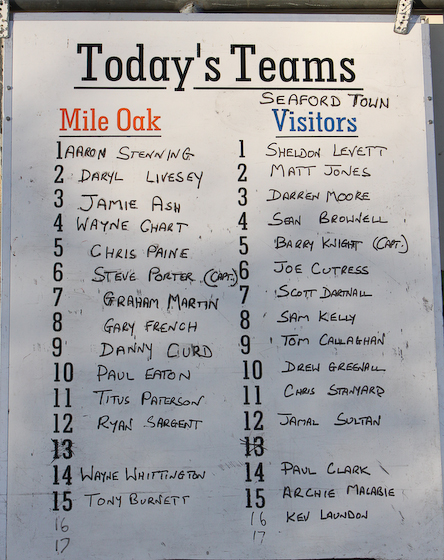 Today's Teams
SEAFORD TOWN
Mile Oak Visitors
1 AARON STENNING 1 SHELDON LEVETT
2 DARYL LIVESEY 2 MATT JONES
3 JAMIE ASH 3 DARREN MOORE
4 WAYNE CHART 4 SEAN BROWNELL
5 CHRIS PAINE 5 BARRY KNIGHT (CAPT.)
6 STEVE PORTER (CAPT.) 6 JOE CUTRESS
7 GRAHAM MARTIN 7 SCOTT DARTNALL
8 GARY FRENCH 8 SAM KELLY
9 DANNY CURD 9 TOM CALLAGHAN
10 PAUL EATON 10 DREW GREENALL
11 TITUS PATERSON 11 CHRIS STANYARD
12 RYAN SARGENT 12 JAMAL SULTAN
13 13
14 WAYNE WHITTINGTON 14 PAUL CLARK
15 TONY BURNETT 15 ARCHIE MACABIE
16 16 KEV LAUNDON
17 17